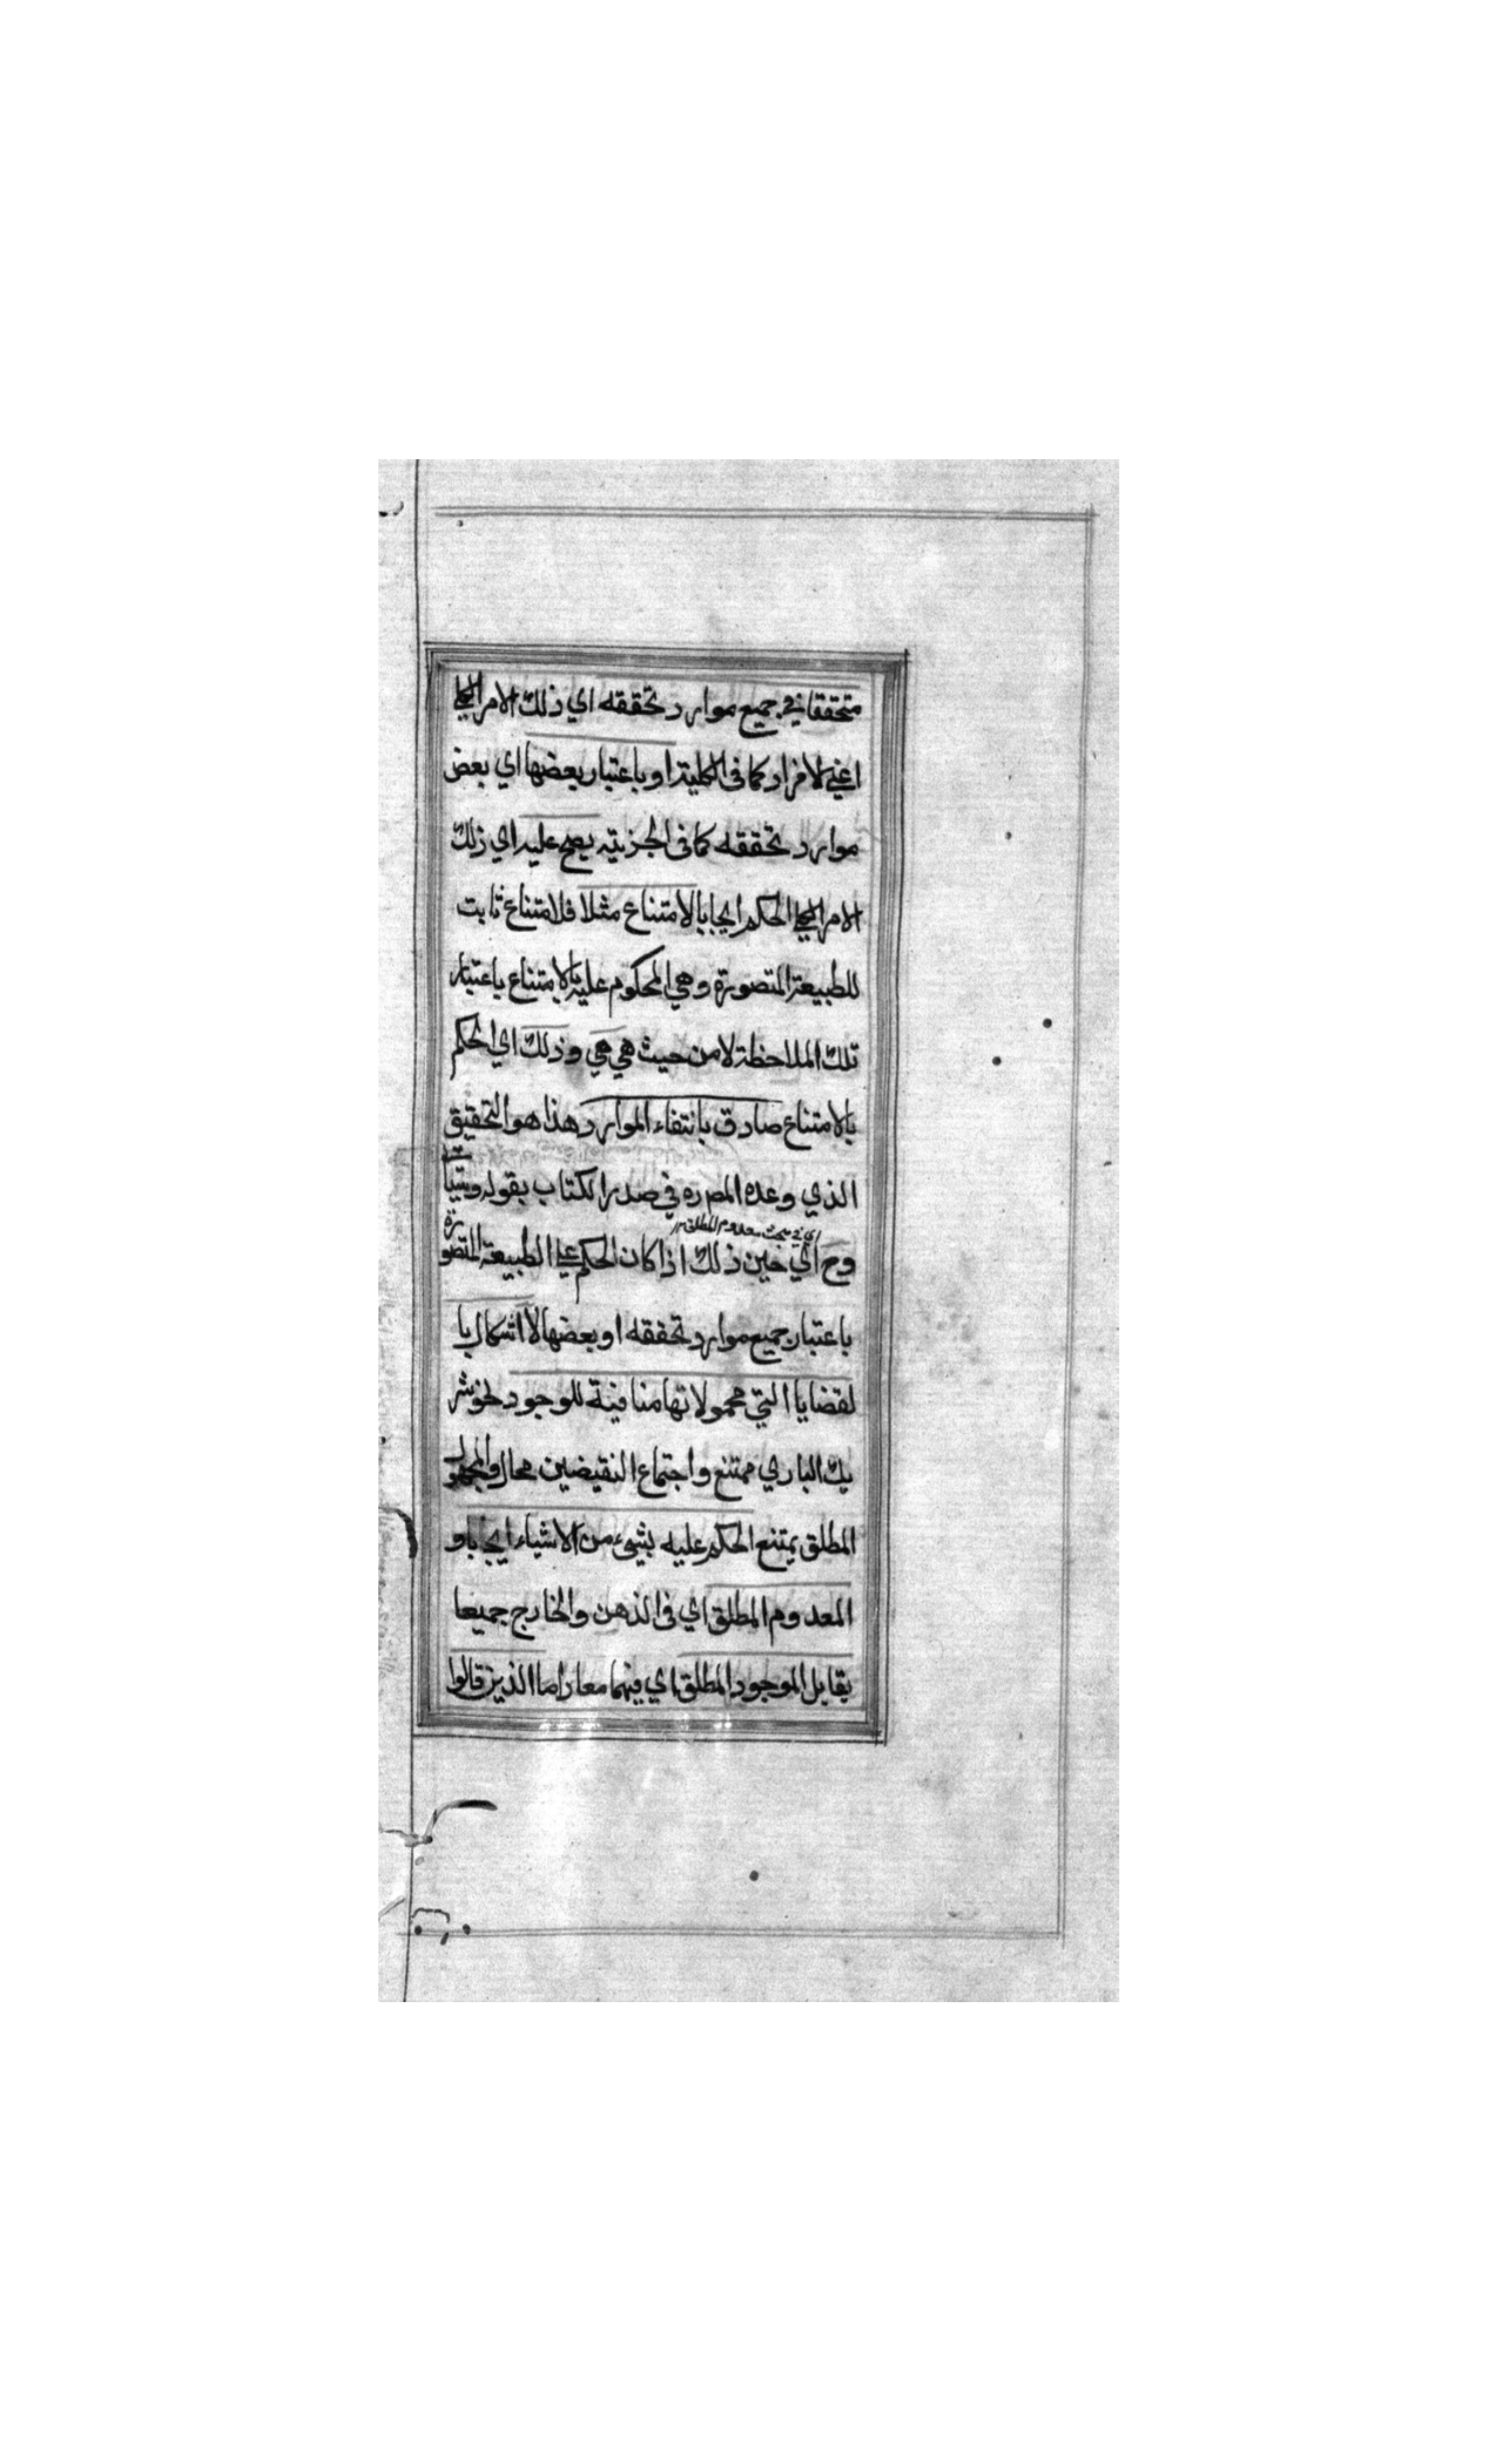 متحققا في جميع موارد تحققه اي ذلك الامر الكلي
اعني الافراد كما في الكلية او باعتبار بعضها اي بعض
موارد تحققه كما في الجزئية يصح عليه اي ذلك
الامر الكلي الحكم ايجابا بالامتناع مثلا فلامتناع ثابت
للطبيعة المتصورة وهي المحكوم عليها بالامتناع باعتبار
تلك الملاحظة لا من حيث هي هي وذلك اي الحكم
بالامتناع صادق بانتفاء الموارد هذا هو التحقيق
الذي وعده المص ره في صدر الكتاب بقوله وسيأتي
اي في مبحث معدوم المطلق
وح اي حين ذلك اذا كان الحكم علي الطبيعة المتصورة
باعتبار جميع موارد تحققه او بعضها لا اشكال با
لقضايا التي محمولاتها منافية للوجود نحو شر
يك الباري ممتنع واجتماع النقيضين محال والمجهول
المطلق يمتنع الحكم عليه بشيء من الاشياء ايجابا و
المعدوم المطلق اي في الذهن والخارج جميعا
يقابل الموجود المطلق اي فيهما معا واما الذين قالوا